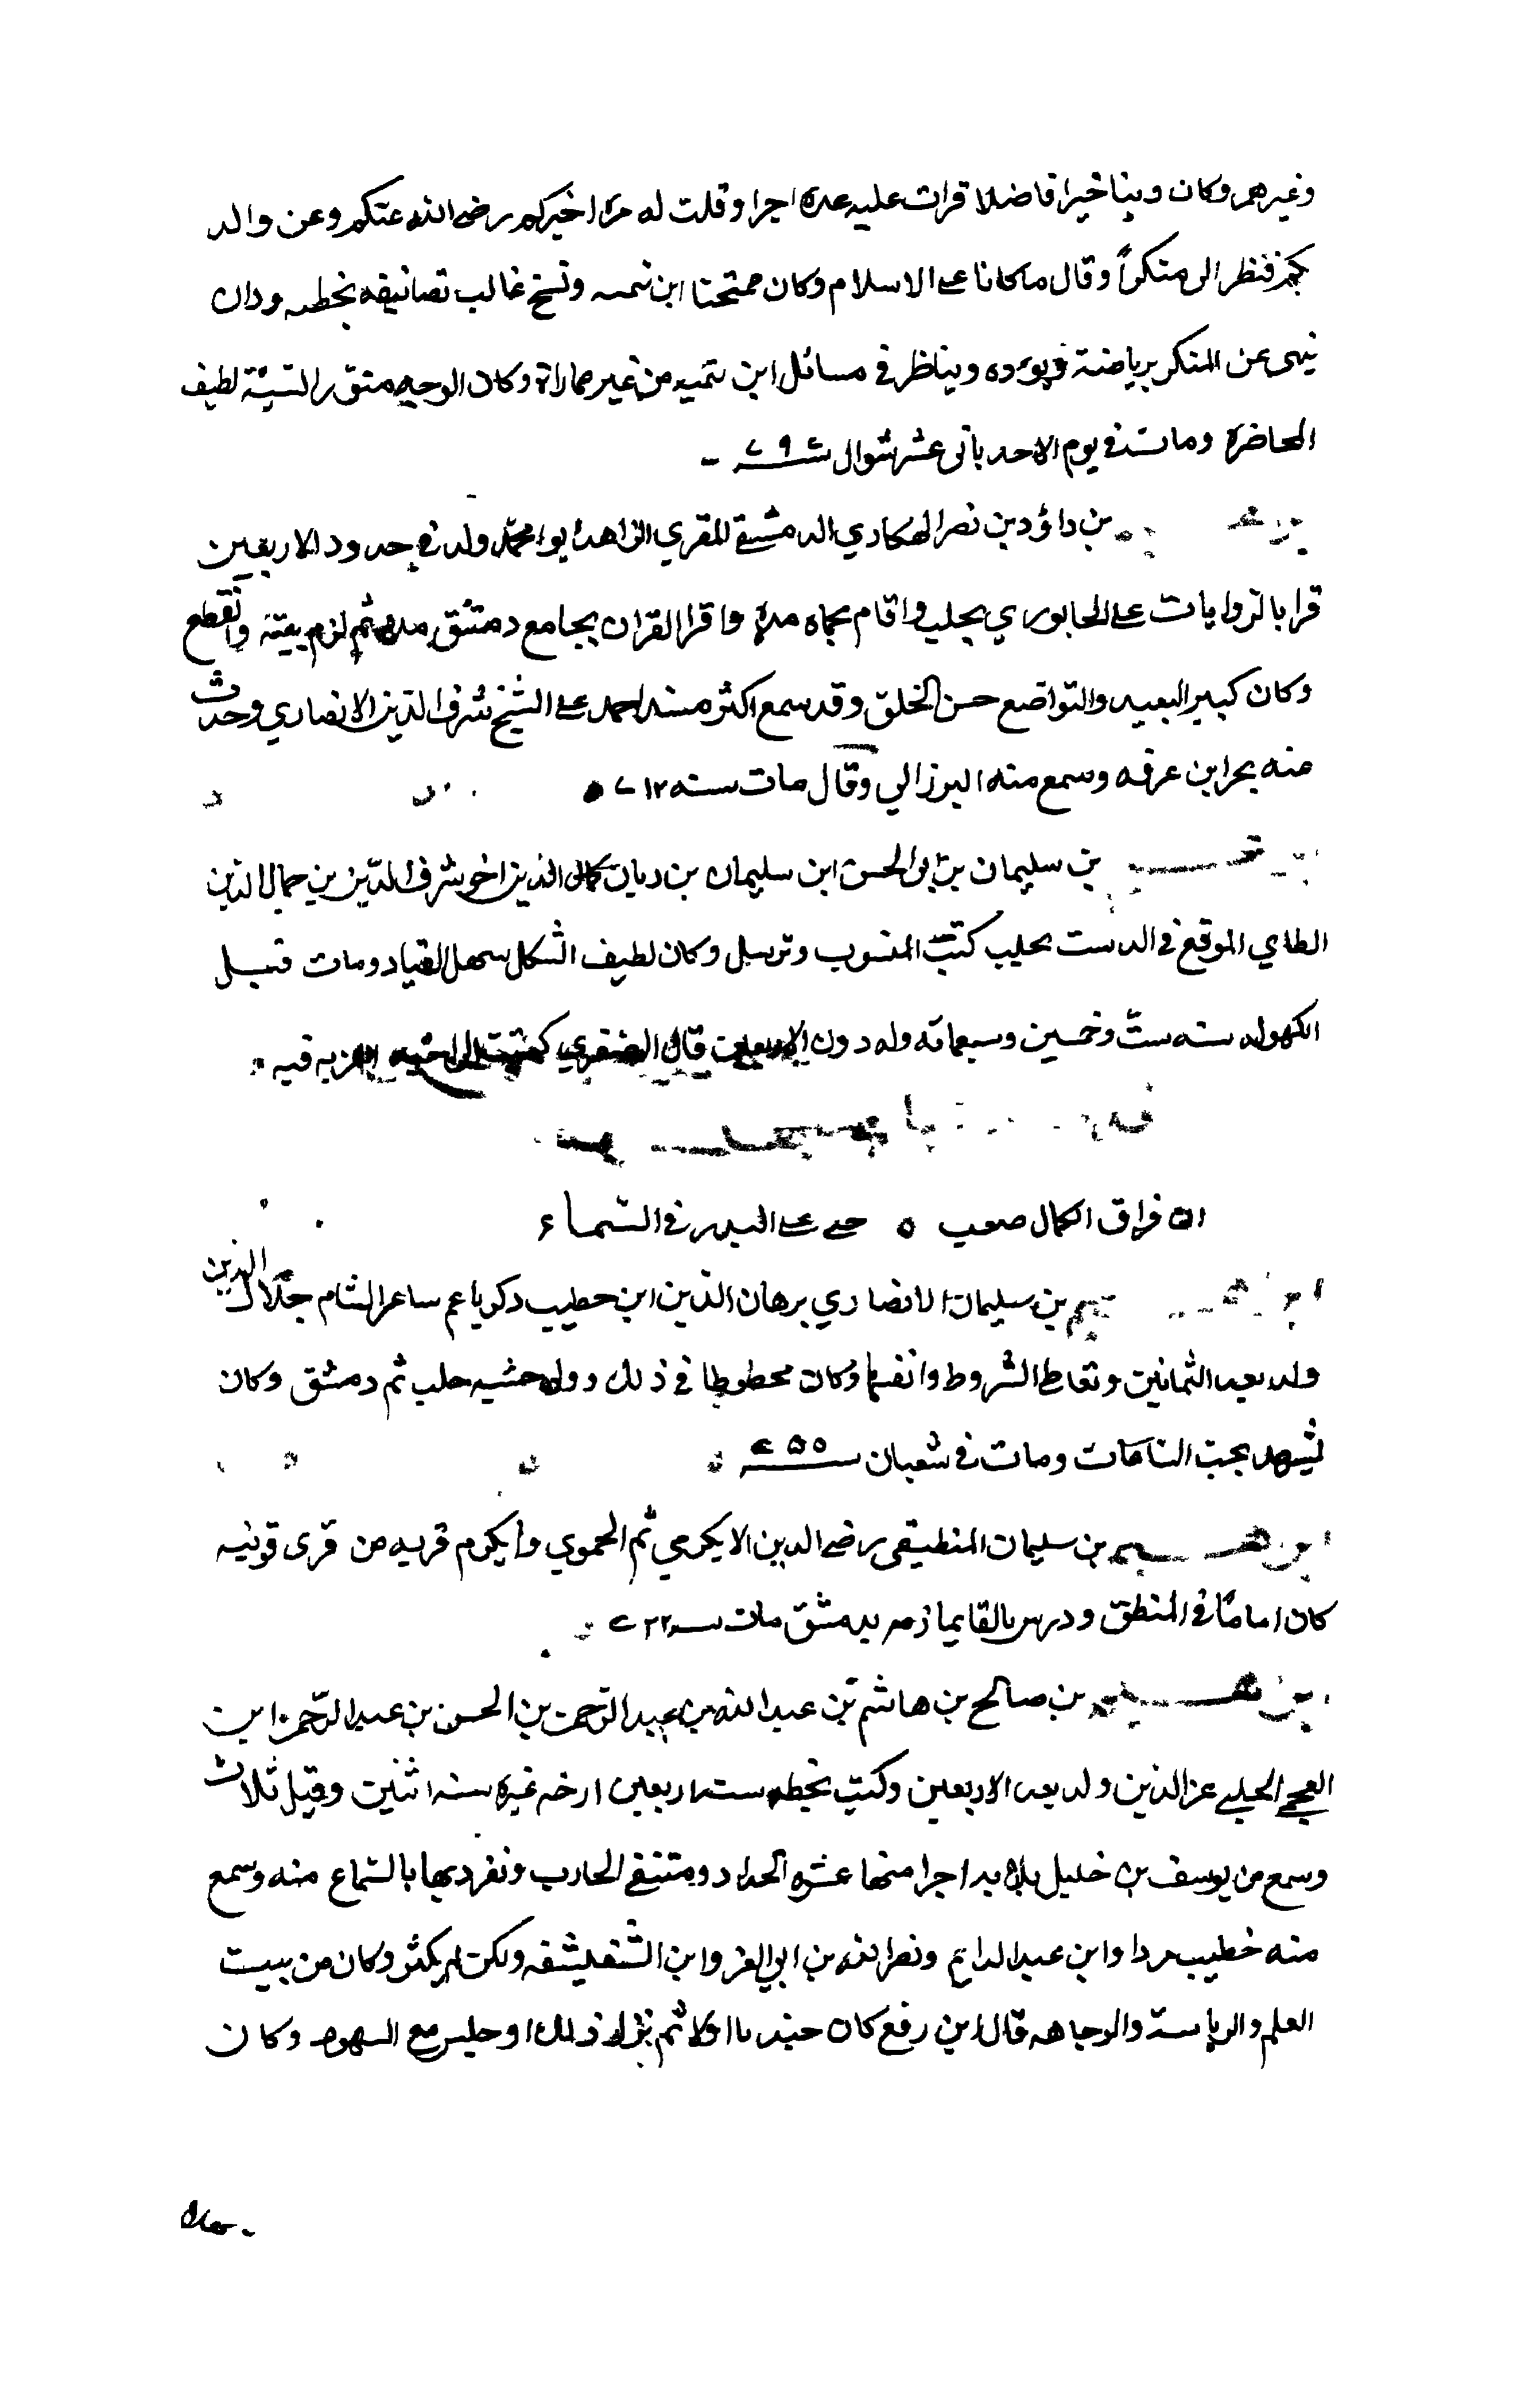 وغيرهم وكان دينا خيرا فاضلا قرات عليه عدة اجزا وقلت له مرة اخبركم رضي الله عنكم وعن والد
يكم فنظر الى منكرا وقال ما كانا على الاسلام وكان ممتحنا ابن تيميه ونسخ غالب تصانيفه بخطه وداب
ينهى عن المنكر برياضة وتؤده ويناظر في مسائل ابن تيميه من غير مماراة وكان الوجيه منور الشيبة لطيف
المحاضرة ومات في يوم الاحد ثاني عشر شوال سنة ٧٠٩
بن داؤد بن نصر الهكاري الدمشقي المقري الزاهد ابو محمد ولد في حدود الاربعين
قرا بالروايات على الخابوري بحلب واقام بحماه مدة واقرا القران بجامع دمشق مدة ثم لزم بيته وانقطع
وكان كبير التعبد والتواضع حسن الخلق وقد سمع اكثر مسند احمد على الشيخ شرف الدين الانصاري وحدث
منه بجزا بن عرفه وسمع منه البرزالي وقال مات سنه ٧١٢
بن سليمان بن ابي الحسن ابن سليمان بن ريان كمال الدين اخو شرف الدين بن جمال الدين
الطاي الموقع في الدست بحلب كتب المنسوب وترسل وكان لطيف الشكل سهل القياد ومات قبل
الكهوله سنه ست وخمسين وسبعمائه وله دون الاربعين قال الصفدي كتبت الى اخيه اعزيه فيه
ان فراق الكمال صعب ٥ حتى على البدر في السماء
بن سليمان الانصاري برهان الدين ابن خطيب دكريا عم ساعر الشام جلال الدين
ولد بعد الثمانين وتعاطى الشروط واتقنها وكان محظوظا في ذلك وولى حسبه حلب ثم دمشق وكان
يشهد بحب الناعات ومات في شعبان سنة ٧٥٥
ابرهيم بن سليمان المنطيقي رضي الدين الايكرمي ثم الحموي وايكرم قريه من قرى قونيه
كان اماما في المنطق ودرس بالقايمازيه بدمشق مات سنه ٧٣٢
ابرهيم بن صالح بن هاشم بن عبد الله بن عبد الرحمن بن الحسن بن عبد الرحمن ابن
العجمي الحلبي عز الدين ولد بعد الاربعين وكتب بخطه سنة اربعين ارخه غيره سنه اثنين وقيل ثلاث
وسمع من يوسف بن خليل بلا بد اجزا منها عشره الحداد ومتنقى الحارث وتفرد بها بالسماع منه وسمع
منه خطيب مردا وابن عبد الدايم ونصر الله بن ابي العز وابن الشقيشقه ولكن لم يكثر وكان من بيت
العلم والرياسة والوجاهه قال ابن رافع كان جنديا اولا ثم نزل ذلك وجلس مع الشهود وكان